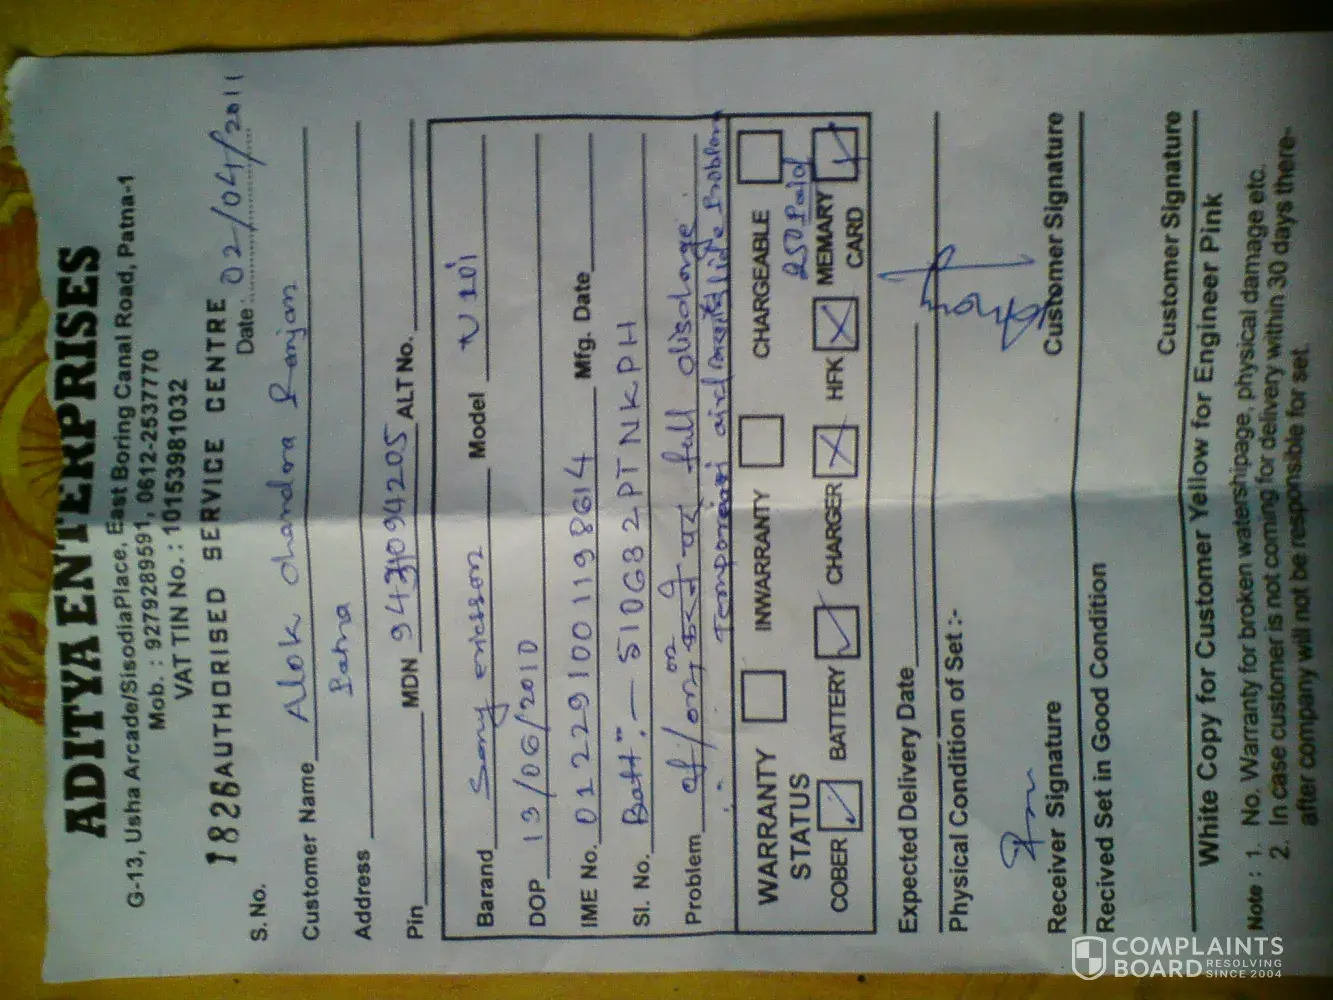 ADITYA ENTERPRISES
G-13, Usha Arcade/SisodiaPlace, East Boring Canal Road, Patna-1
Mob. : 9279289591, 0612-2537770
VAT TIN No. : 10153981032
1826 AUTHORISED SERVICE CENTRE
S. No. Date : 02/04/2011
Customer Name Alok chandra Ranjan
Address Patna
Pin MDN 9431094205 ALT No.
Barand Sony ericsson Model
DOP 13/06/2010
IME No. 012291001198614 Mfg. Date
Sl. No. Batt:- 510G32PTNKPH
Problem of/on, on करने पर full discharge
Problem
WARRANTY STATUS INWARRANTY CHARGEABLE
250 Paid
COBER BATTERY CHARGER HFK MEMARY CARD
Expected Delivery Date
Physical Condition of Set :-
Receiver Signature Customer Signature
Recived Set in Good Condition
Customer Signature
White Copy for Customer Yellow for Engineer Pink
Note : 1. No. Warranty for broken watershipage, physical damage etc.
2. In case customer is not coming for delivery within 30 days there-
after company will not be responsible for set.
COMPLAINTS
BOARD RESOLVING SINCE 2004